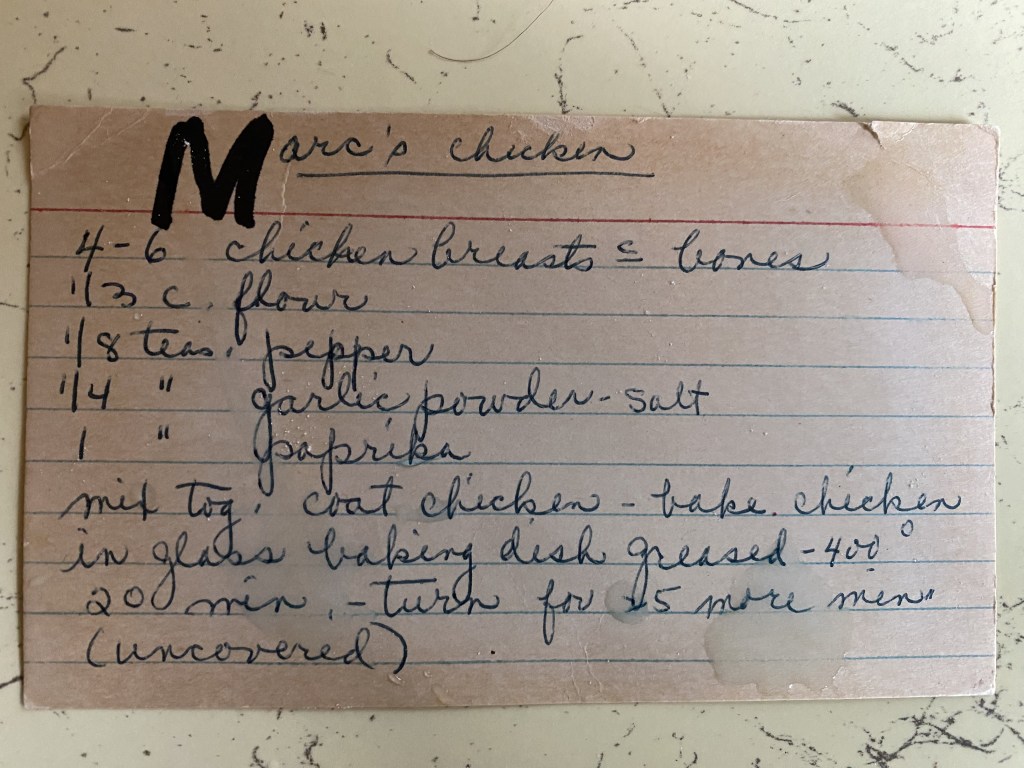 Marc's chicken
4-6 chicken breasts c̄ bones
1/3 c. flour
1/8 teas. pepper
1/4 " garlic powder - salt
1 " paprika
mix tog. coat chicken - bake chicken
in glass baking dish greased - 400°
20 min. - turn for 25 more min.
(uncovered)